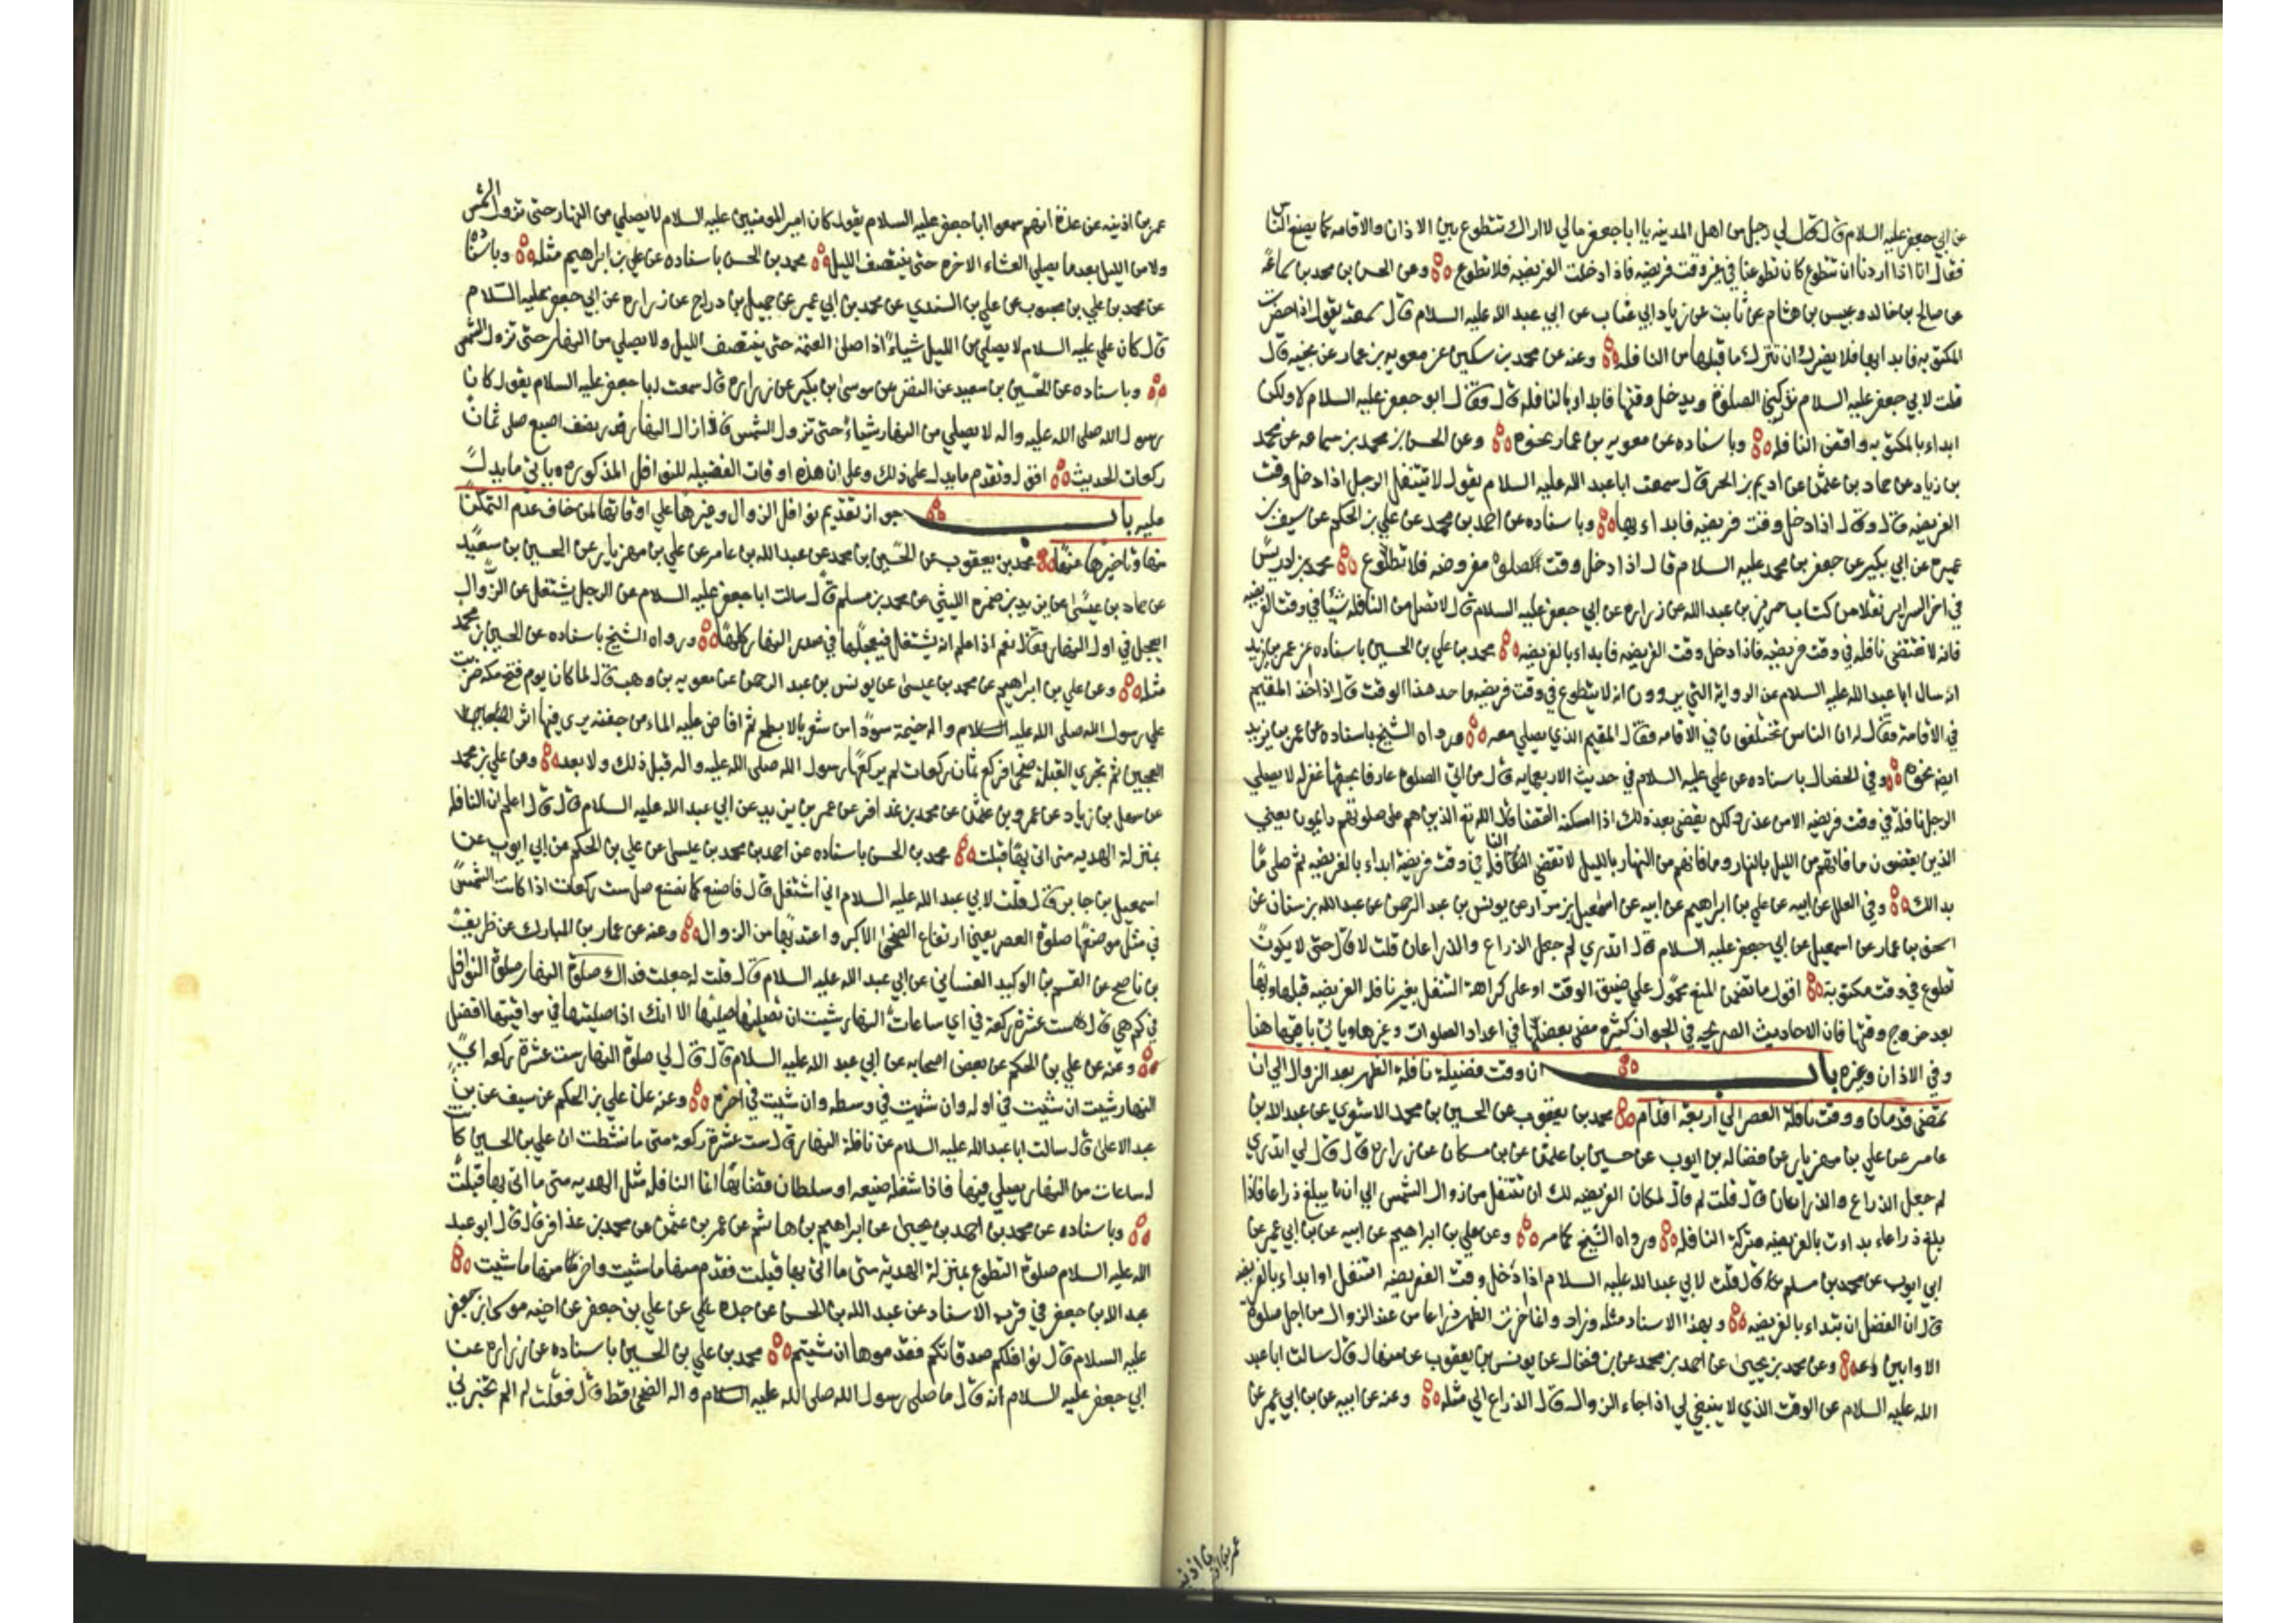 عن ابي جعفر عليه السلام قال قال لي رجل من اهل المدينه يا ابا جعفر مالي لا اراك تتطوع بين الاذان والاقامه كما يصنع الناس
فقال انا اذا اردنا ان نتطوع كان تطوعنا في غير وقت فريضه فاذا دخلت الفريضه فلا تطوع وعن الحسن بن محمد بن سماعه
عن صالح بن خالد وعبيس بن هشام عن ثابت عن زياد ابي عتاب عن ابي عبد الله عليه السلام قال سمعته يقول اذا حضرت
المكتوبه فابدا بها فلا يضرك ان تترك ما قبلها من النافله وعنه عن محمد بن سكين عن معويه بن عمار عن نجيه قال
قلت لابي جعفر عليه السلام تدركني الصلوة ويدخل وقتها فابدا بالنافله قال فقال ابو جعفر عليه السلام لا ولكن
ابداء بالمكتوبه واقض النافله وباسناده عن معويه بن عمار نحوه وعن الحسن بن محمد بن سماعه عن محمد
بن زياد عن حماد بن عثمن عن اديم بن الحر قال سمعت ابا عبد الله عليه السلام يقول لا يتنفل الرجل اذا دخل وقت
الفريضه قال وقال اذا دخل وقت فريضه فابداء بها وباسناده عن احمد بن محمد عن علي بن الحكم عن سيف بن
عميرة عن ابي بكير عن جعفر بن محمد عليه السلام قال اذا دخل وقت صلوة مفروضه فلا تطوع محمد بن ادريس
في اخر السراير نقلا من كتاب حريز بن عبد الله عن زرارة عن ابي جعفر عليه السلام قال لا تصل من النافله شيئا في وقت الفريضه
فانه لا تقضى نافله في وقت فريضه فاذا دخل وقت الفريضه فابداء بالفريضه محمد بن علي بن الحسين باسناده عن عمر بن يزيد
انه سال ابا عبد الله عليه السلام عن الرواية التي يروون انه لا يتطوع في وقت فريضه ما حد هذا الوقت قال اذا اخذ المقيم
في الاقامة فقال له ان الناس يختلفون في الاقامه فقال المقيم الذي يصلي معه ورواه الشيخ باسناده عن عمر بن يزيد
ايض نحوه وفي الخصال باسناده عن علي عليه السلام في حديث الاربعمايه قال من اتى الصلوة عارفا بحقها غفر له لا يصلي
الرجل نافلة في وقت فريضه الا من عذر ولكن يقضي بعد ذلك اذا امكنه القضا قال الله تع الذين هم على صلوتهم دايمون يعني
الذين يقضون ما فاتهم من الليل بالنهار وما فاتهم من النهار بالليل لا تقضى النافلة في وقت فريضة ابداء بالفريضه ثم صل ما
بدا لك وفي العلل عن ابيه عن علي بن ابراهيم عن ابيه عن اسمعيل بن مرار عن يونس بن عبد الرحمن عن عبد الله بن سنان عن
اسحق بن عمار عن اسمعيل عن ابي جعفر عليه السلام قال اتدري لم جعل الذراع والذراعان قلت لا قال حتى لا يكون
تطوع في وقت مكتوبة اقول ما تضمن المنع محمول على ضيق الوقت او على كراهة التنفل بغير نافله الفريضه قبلها وبها
بعد خروج وقتها فان الاحاديث الصريحه في الجواز كثيرة مضى بعضها في اعداد الصلوات وغيرها وياتي باقيها هنا
وفي الاذان وغيره باب ان وقت فضيلة نافلة الظهر بعد الزوال الى ان
تمضى قدمان ووقت نافلة العصر الى اربعة اقدام محمد بن يعقوب عن الحسين بن محمد الاشعري عن عبد الله بن
عامر عن علي بن مهزيار عن فضاله بن ايوب عن حسين بن عثمن عن بن مسكان عن زرارة قال قال لي اتدري
لم جعل الذراع والذراعان قال قلت لم قال لمكان الفريضه لك ان تتنفل من زوال الشمس الى ان يبلغ ذراعا فاذا
بلغ ذراعاء بداءت بالفريضه وتركة النافله ورواه الشيخ كما مر وعن علي بن ابراهيم عن ابيه عن بن ابي عمير عن
ابي ايوب عن محمد بن مسلم قال قلت لابي عبد الله عليه السلام اذا دخل وقت الفريضه اتنفل او ابداء بالفريضه
قال ان الفضل ان تبداء بالفريضه وبهذا الاسناد مثله وزاد وانما اخرت الظهر ذراعا من عند الزوال من اجل صلوة
الاوابين وعن محمد بن يحيى عن احمد بن محمد عن بن فضال عن يونس بن يعقوب عن منهال قال سالت ابا عبد
الله عليه السلام عن الوقت الذي لا ينبغي لي اذا جاء الزوال قال الذراع الى مثله وعنه عن ابيه عن بن ابي عمير عن
عمر بن اذينه
عمر بن اذينه عن عدة انهم سمعوا ابا جعفر عليه السلام يقول كان امير المومنين عليه السلام لا يصلي من النهار حتى تزول الشمس
ولا من الليل بعد ما يصلي العشاء الاخره حتى ينتصف الليل محمد بن الحسن باسناده عن علي بن ابراهيم مثله وباسناده
عن محمد بن علي بن محبوب عن علي بن السندي عن محمد بن ابي عمير عن جميل بن دراج عن زرارة عن ابي جعفر عليه السلام
قال كان علي عليه السلام لا يصلي من الليل شياء اذا صلى العتمة حتى ينتصف الليل ولا يصلي من النهار حتى تزول الشمس
وباسناده عن الحسين بن سعيد عن النضر عن موسى بن بكير عن زرارة قال سمعت ابا جعفر عليه السلام يقول كان
رسول الله صلى الله عليه واله لا يصلي من النهار شياء حتى تزول الشمس فاذا زال النهار قدر نصف اصبع صلى ثمان
ركعات الحديث اقول وتقدم ما يدل على ذلك وعلى ان هذه اوقات الفضيله للنوافل المذكوره وياتي ما يدل
عليه باب جواز تقديم نوافل الزوال وغيرها على اوقاتها لمن خاف عدم التمكن
منها وتاخيرها عنها محمد بن يعقوب عن الحسين بن محمد عن عبد الله بن عامر عن علي بن مهزيار عن الحسين بن سعيد
عن حماد بن عيسى عن يزيد بن ضمره الليثي عن محمد بن مسلم قال سالت ابا جعفر عليه السلام عن الرجل يشتغل عن الزوال
ايعجل في اول النهار فقال نعم اذا علم انه يشتغل فيعجلها في صدر النهار كلها ورواه الشيخ باسناده عن الحسين بن محمد
مثله وعن علي بن ابراهيم عن محمد بن عيسى عن يونس بن عبد الرحمن عن معويه بن وهب قال لما كان يوم فتح مكه ضربت
على رسول الله صلى الله عليه السلام واله خيمة سودا من شعر بالابطح ثم افاض عليه الماء من جفنه يرى فيها اثر
العجين ثم تحرى القبلة ضحى فركع ثمان ركعات لم يركعها رسول الله صلى الله عليه واله قبل ذلك ولا بعد وعن علي بن محمد
عن سهل بن زياد عن عمرو بن عثمن عن محمد بن عذافر عن عمر بن يزيد عن ابي عبد الله عليه السلام قال قال اعلم ان النافله
بمنزلة الهديه متى اتى بها قبلت محمد بن الحسن باسناده عن احمد بن محمد بن عيسى عن علي بن الحكم عن ابي ايوب عن
اسمعيل بن جابر قال قلت لابي عبد الله عليه السلام اني اشتغل قال فاصنع كما نصنع صل ست ركعات اذا كانت الشمس
في مثل موضعها صلوة العصر يعني ارتفاع الضحى الاكبر واعتد بها من الزوال وعنه عن عمار بن المبارك عن ظريف
بن ناصح عن القسم بن الوليد الغساني عن ابي عبد الله عليه السلام قال قلت له جعلت فداك صلوة النهار صلوة النوافل
في كم هي قال ست عشرة ركعة في اي ساعات النهار شيت ان تصليها صليتها الا انك اذا صليتها في مواقيتها افضل
وعنه عن علي بن الحكم عن بعض اصحابه عن ابي عبد الله عليه السلام قال قال لي صلوة النهار ست عشرة ركعه اي
النهار شيت ان شيت في اوله وان شيت في وسطه وان شيت في اخره وعنه عن علي بن الحكم عن سيف عن بن
عبد الاعلى قال سالت ابا عبد الله عليه السلام عن نافلة النهار قال ست عشرة ركعة متى ما نشطت ان علي بن الحسين كا
له ساعات من النهار يصلي فيها فاذا شغله ضيعه او سلطان قضاها انما النافله مثل الهديه متى ما اتى بها قبلت
وباسناده عن محمد بن احمد بن يحيى عن ابراهيم بن هاشم عن عمر بن عثمن عن محمد بن عذافر قال قال ابو عبد
الله عليه السلام صلوة التطوع بمنزلة الهدية متى ما اتى بها قبلت فقدم منها ما شيت واخر منها ما شيت
عبد الله بن جعفر في قرب الاسناد عن عبد الله بن الحسن عن جده علي عن علي بن جعفر عن اخيه موسى بن جعفر
عليه السلام قال نوافلكم صدقاتكم فقدموها ان شيتم محمد بن علي بن الحسين باسناده عن زرارة عن
ابي جعفر عليه السلام انه قال ما صلى رسول الله صلى الله عليه السلام واله الضحى قط قال فقلت له الم تخبرني